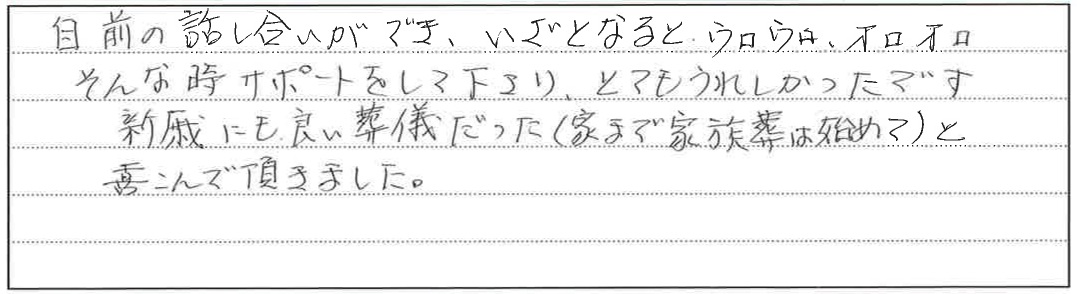 目前の話し合いができ、いざとなると、ウロウロ、オロオロ
そんな時サポートをして下さり、とてもうれしかったです
新戚にも良い葬儀だった(家まで家族葬は始めて)と
喜こんで頂きました。